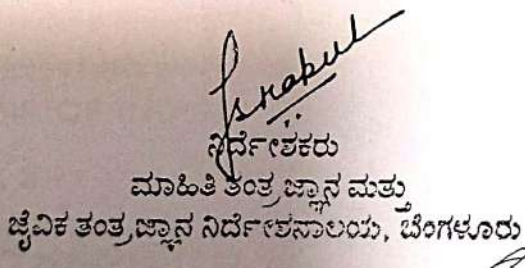 ನಿರ್ದೇಶಕರು
ಮಾಹಿತಿ ತಂತ್ರಜ್ಞಾನ ಮತ್ತು
ಜೈವಿಕ ತಂತ್ರಜ್ಞಾನ ನಿರ್ದೇಶನಾಲಯ, ಬೆಂಗಳೂರು